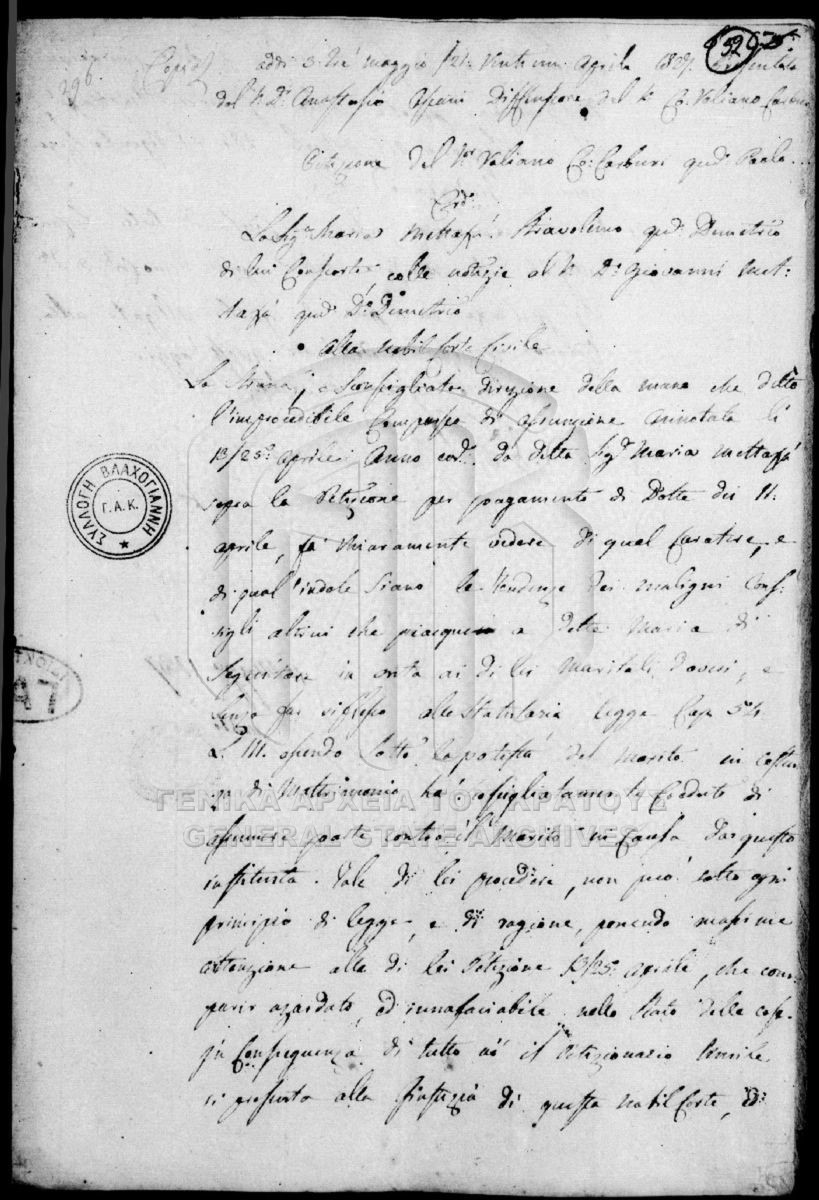 52
296.
Copia
addi 3 Tré maggio /21 Ventiun Aprile 1827 presentata
dal N. Dr. Anastasio Diffensore del N. Co. Valiano Carburi
Petizione del Nr. Valiano Co: Carburi qud. Paolo
Cod.
La Sigra Maria Mettaxà qud. Demetrio
di lui Consorte colle notizie al N. Dr. Giovanni Met-
taxà qud. Dr. Demetrio
Alla Nobil Corte Civile
La Strana, e Sconsigliata direzione della mano che dettò
l'improcedibile Comparsa di assunzione annotata li
13/25 Aprile Anno cord. da detta Sigra Maria Mettaxà
sopra la Petizione per pagamento di Dotte dei 11.
aprile, fa chiaramente vedere di qual Carattere, e
di qual indole siano le tendenze dei maligni Con-
sigli altrui che piacque a detta Maria di
Seguitare in onta ai di lei Maritali doveri, e
Senza far riflesso alle Statutaria legge Cap. 54.
L. III. essendo sotto la potestà del Marito in costan-
za di Matrimonio ha Creduto di
assumer parte contro il Marito in Causa da questo
instituita. Tale di lei procedere, non può sotto ogni
principio di legge, e di ragione, ponendo massime
attenzione alla di lei Petizione 13/25 Aprile, che com-
parir azardato, ed innafaciabile nello Stato delle cose.
In Conseguenza di tutto ciò il Petizionario Umile
si presenta alla Giustizia di questa Nobil Corte, ed
ΣΥΛΛΟΓΗ ΒΛΑΧΟΓΙΑΝΝΗ
Γ.Α.Κ.
ΓΕΝΙΚΑ ΑΡΧΕΙΑ ΤΟΥ ΚΡΑΤΟΥΣ
GENERAL STATE ARCHIVES